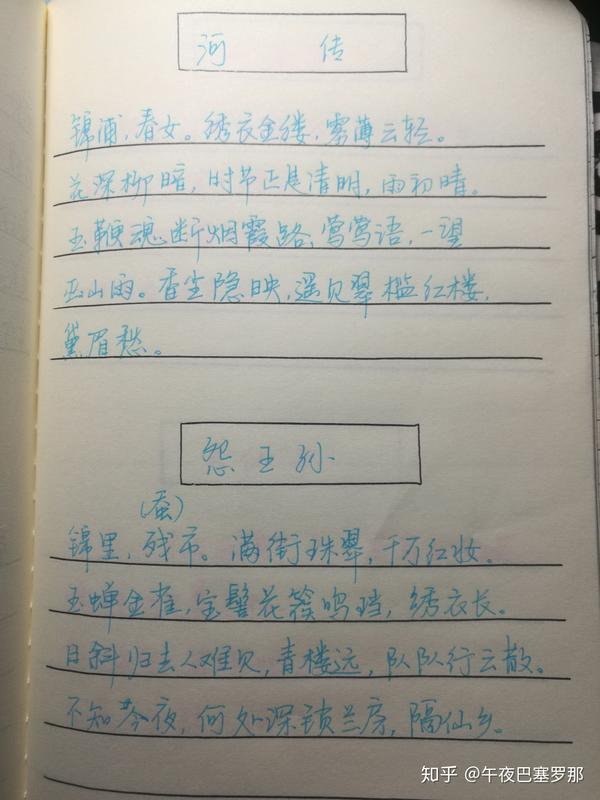 河 传
锦浦,春女。绣衣金缕,雾薄云轻。
花深柳暗,时节正是清明,雨初晴。
玉鞭魂断烟霞路,莺莺语,一望
巫山雨。香尘隐映,遥见翠槛红楼,
黛眉愁。
怨王孙
(蚕)
锦里,残市。满街珠翠,千万红妆。
玉蝉金雀,宝髻花簇鸣珰,绣衣长。
日斜归去人难见,青楼远,队队行云散。
不知今夜,何处深锁兰房,隔仙乡。
知乎 @午夜巴塞罗那